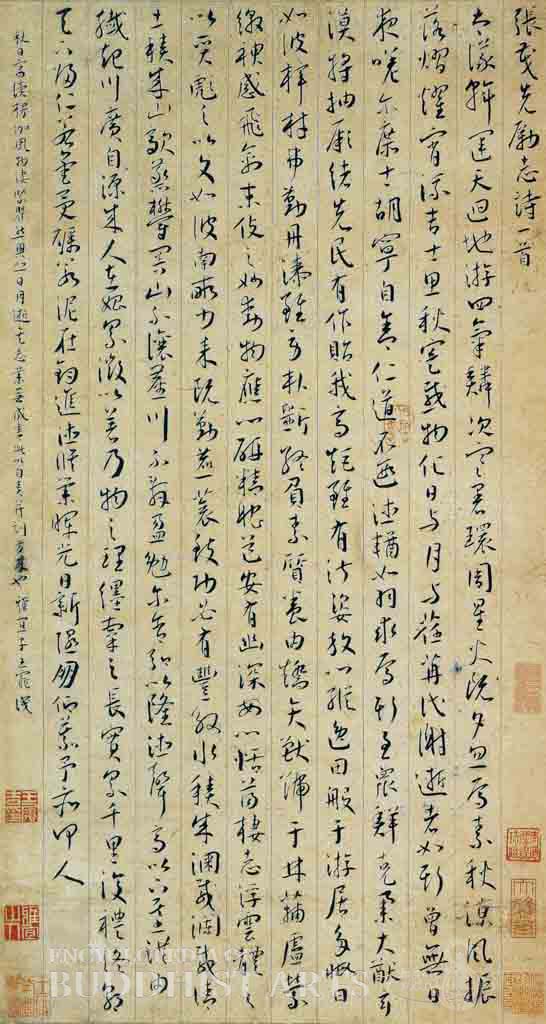 張茂先勵志詩一首
大儀斡運天迴地游四氣鱗次寒暑環周星火既夕忽焉素秋涼風振
落熠燿宵流吉士思秋寔感物化日与月与荏苒代謝逝者如斯曾無日
夜嗟尔庶士胡寧自舍仁道不遐德輶如羽求焉斯至眾鮮克舉大猷玄
漠將抽厥緒先民有作貽我高矩雖有淑姿放心縱逸田般于游居多暇日
如彼梓材弗勤丹漆雖勞朴斲終負素質養由矯矢獸號于林蒲盧縈
繳神感飛禽末伎之妙動物應心研精耽道安有幽深安心恬蕩棲志浮雲體之
以質彪之以文如彼南畝力耒既勤藨蔉致功必有豐殷水積成淵載瀾載清
土積成山歊蒸鬱冥山不讓塵川不辭盈勉尔含弘以隆德聲高以下基洪由
纖起川廣自源成人在始累微以著乃物之理纆牽之長實累千里復禮終朝
天下歸仁若金受礪若泥在鈞進德脩業暉光日新隰朋仰慕予亦何人
秋日 風物淒 日月逝矣志業無成書此以自責并 雅宜子王寵識
ENCYCLOPEDIA OF
BUDDHIST ARTS